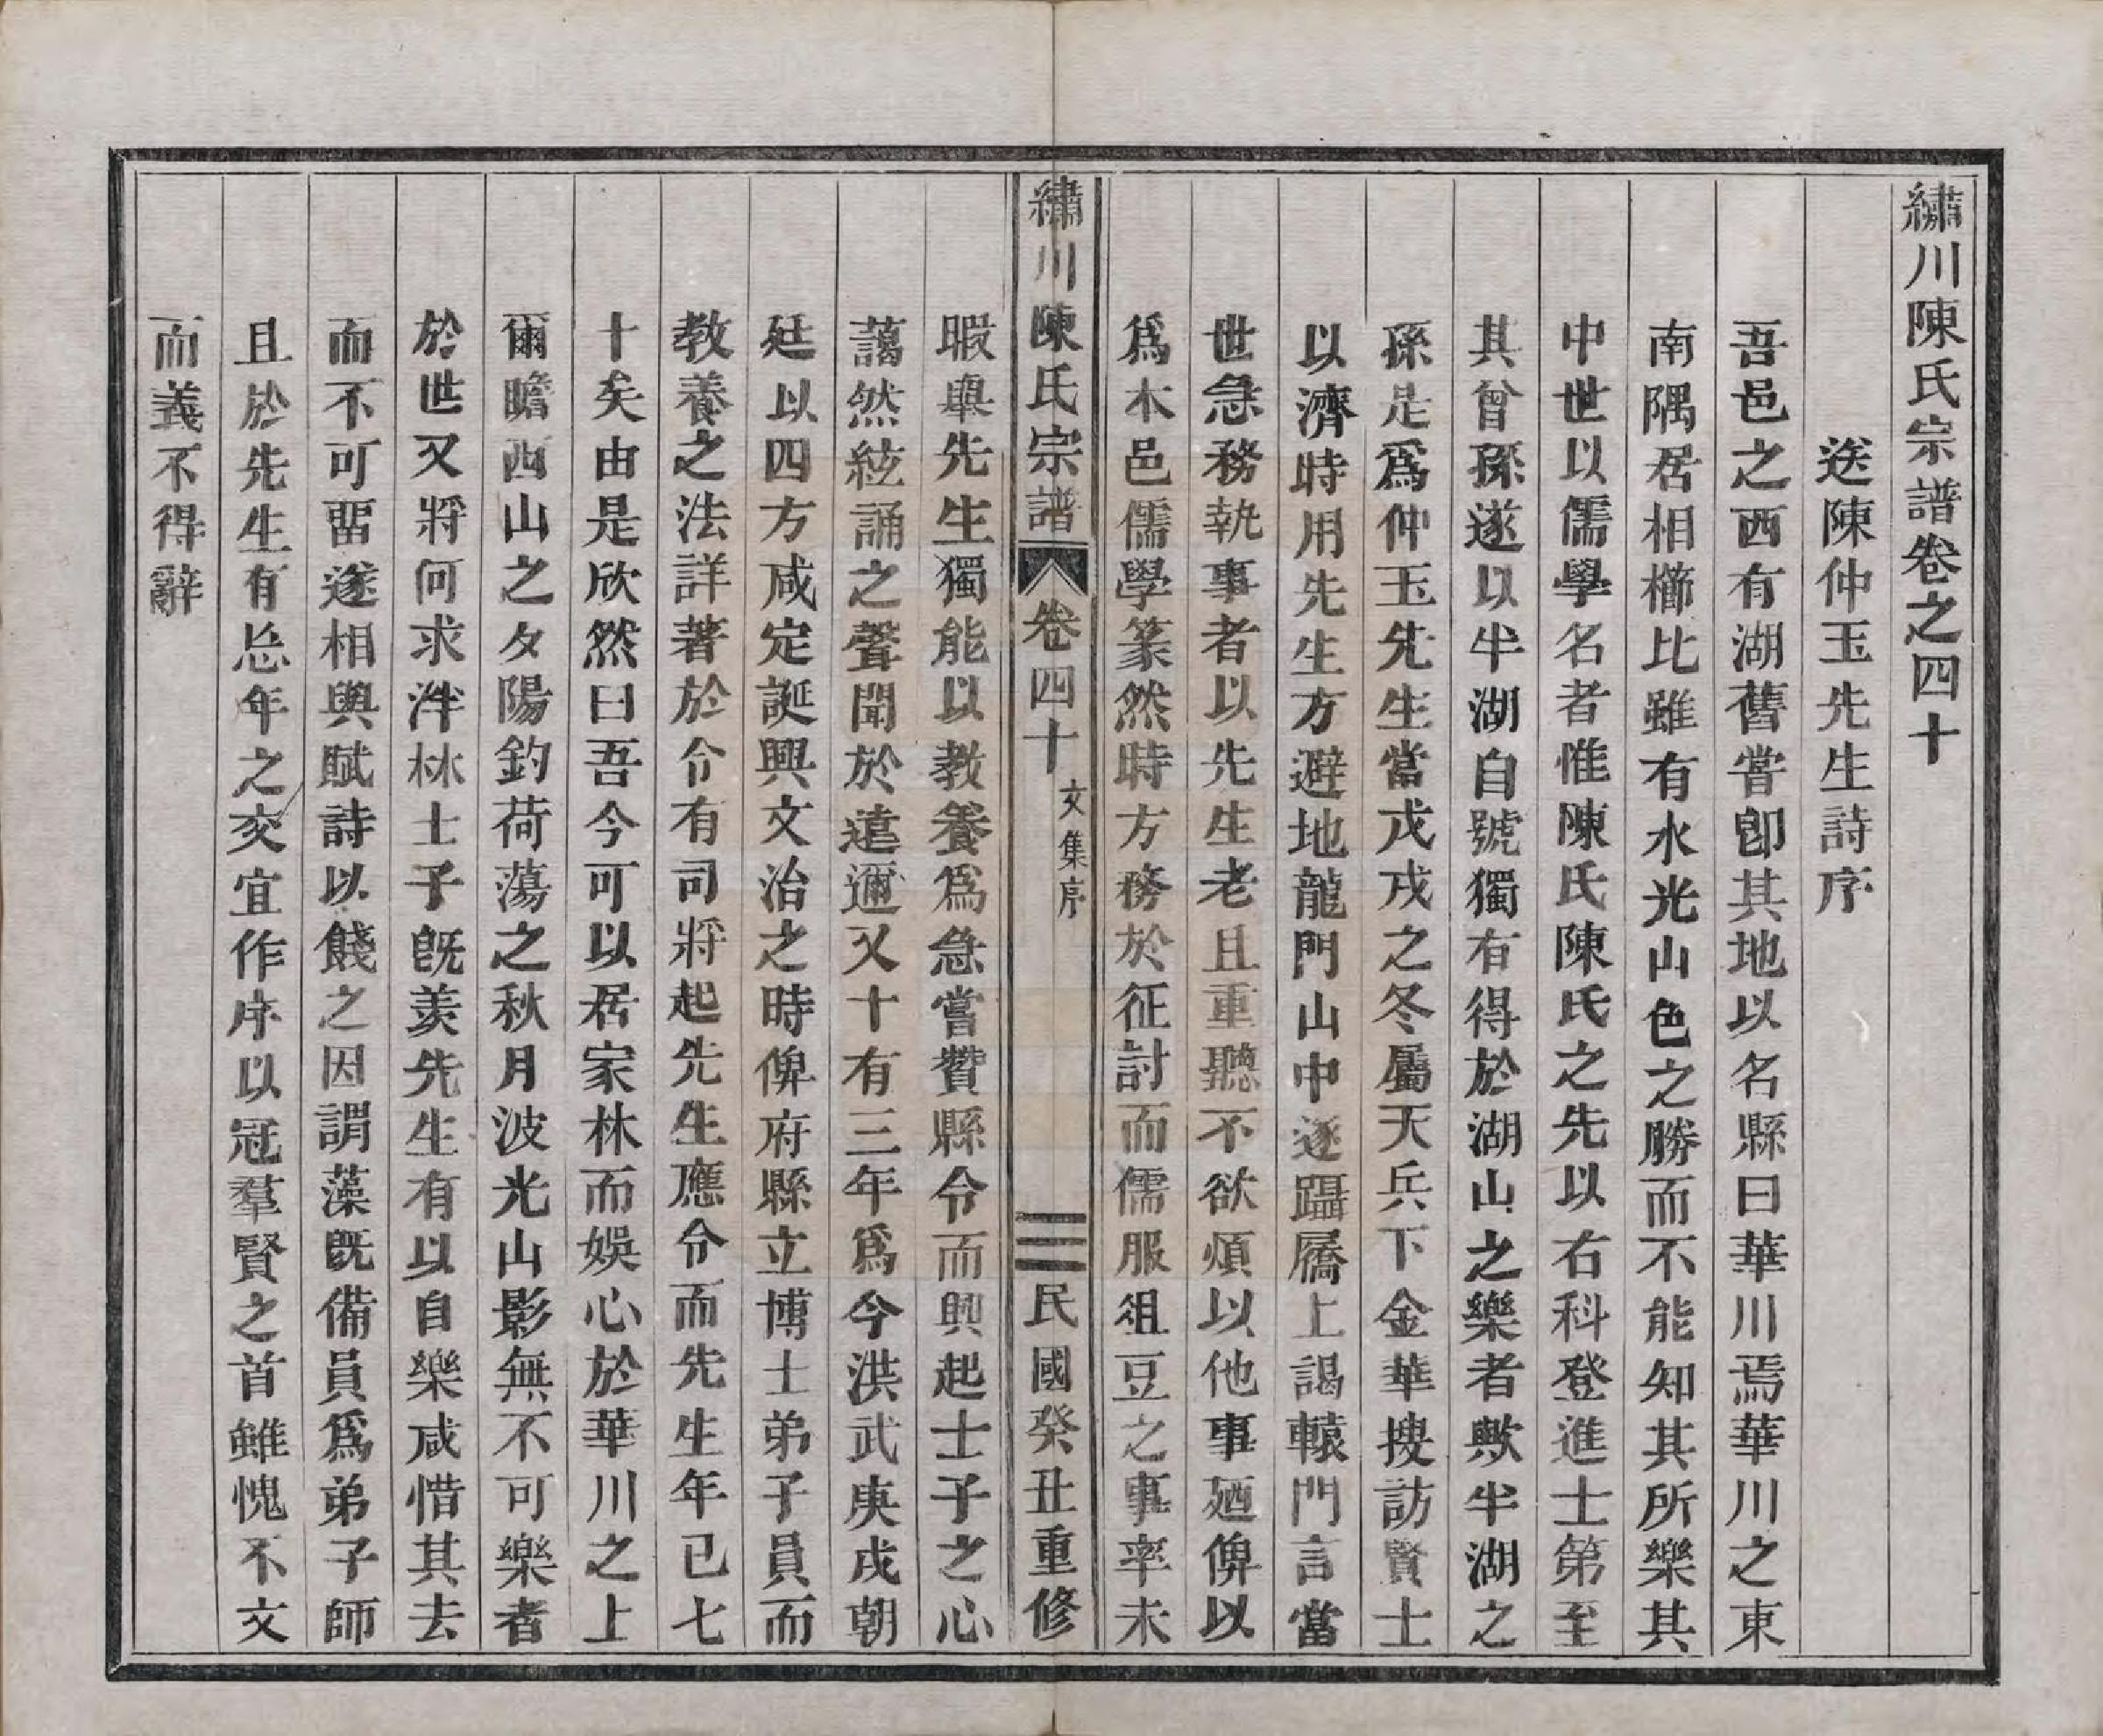 繡川陳氏宗譜卷之四十
送陳仲玉先生詩序
吾邑之西有湖舊嘗卽其地以名縣曰華川焉華川之東
南隅居相櫛比雖有水光山色之勝而不能知其所樂其
中世以儒學名者惟陳氏陳氏之先以右科登進士第至
其曾孫遂以半湖自號獨有得於湖山之樂者歟半湖之
孫是爲仲玉先生當戊戌之冬屬天兵下金華搜訪賢士
以濟時用先生方避地龍門山中遂躡屩上謁轅門言當
世急務執事者以先生老且重聽不欲煩以他事廼俾以
爲本邑儒學篆然時方務於征討而儒服俎豆之事率未
繡川陳氏宗譜 卷四十 文集序 三 民國癸丑重修
暇與先生獨能以教養爲急嘗贊縣令而興起士子之心
藹然絃誦之聲聞於遠邇又十有三年爲今洪武庚戌朝
廷以四方咸定誕興文治之時俾府縣立博士弟子員而
教養之法詳著於令有司將起先生應令而先生年已七
十矣由是欣然曰吾今可以居家林而娛心於華川之上
爾瞻西山之夕陽釣荷蕩之秋月波光山影無不可樂者
於世又將何求泮林士子旣羨先生有以自樂咸惜其去
而不可畱遂相與賦詩以餞之因謂藻旣備員爲弟子師
且於先生有忘年之交宜作序以冠羣賢之首雖愧不文
而義不得辭